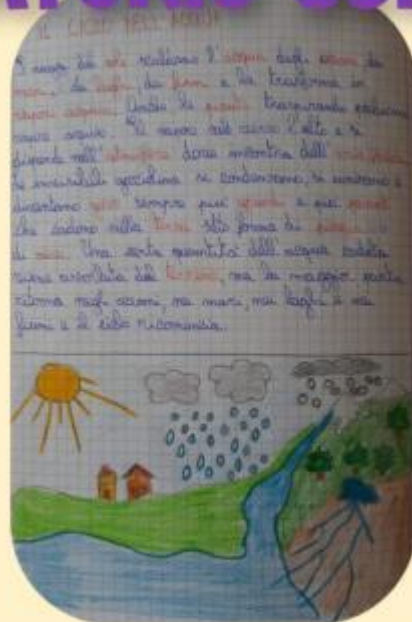 IL CICLO DELL'ACQUA
I raggi del sole scaldano l'acqua degli oceani, dei
mari, dei laghi, dei fiumi e la trasforma in
vapore acqueo. Anche le piante traspirando
vapore acqueo. Il vapore sale verso l'alto e si
disperde nell'atmosfera dove incontra dell'aria
Le invisibili goccioline si condensano, si uniscono e
diventano sempre più grandi e più pesanti
che cadono sulla terra sotto forma di pioggia o
di neve. Una certa quantità dell'acqua caduta
viene assorbita dal terreno, ma la maggior parte
ritorna negli oceani, nei mari, nei laghi e nei
fiumi e il ciclo ricomincia.